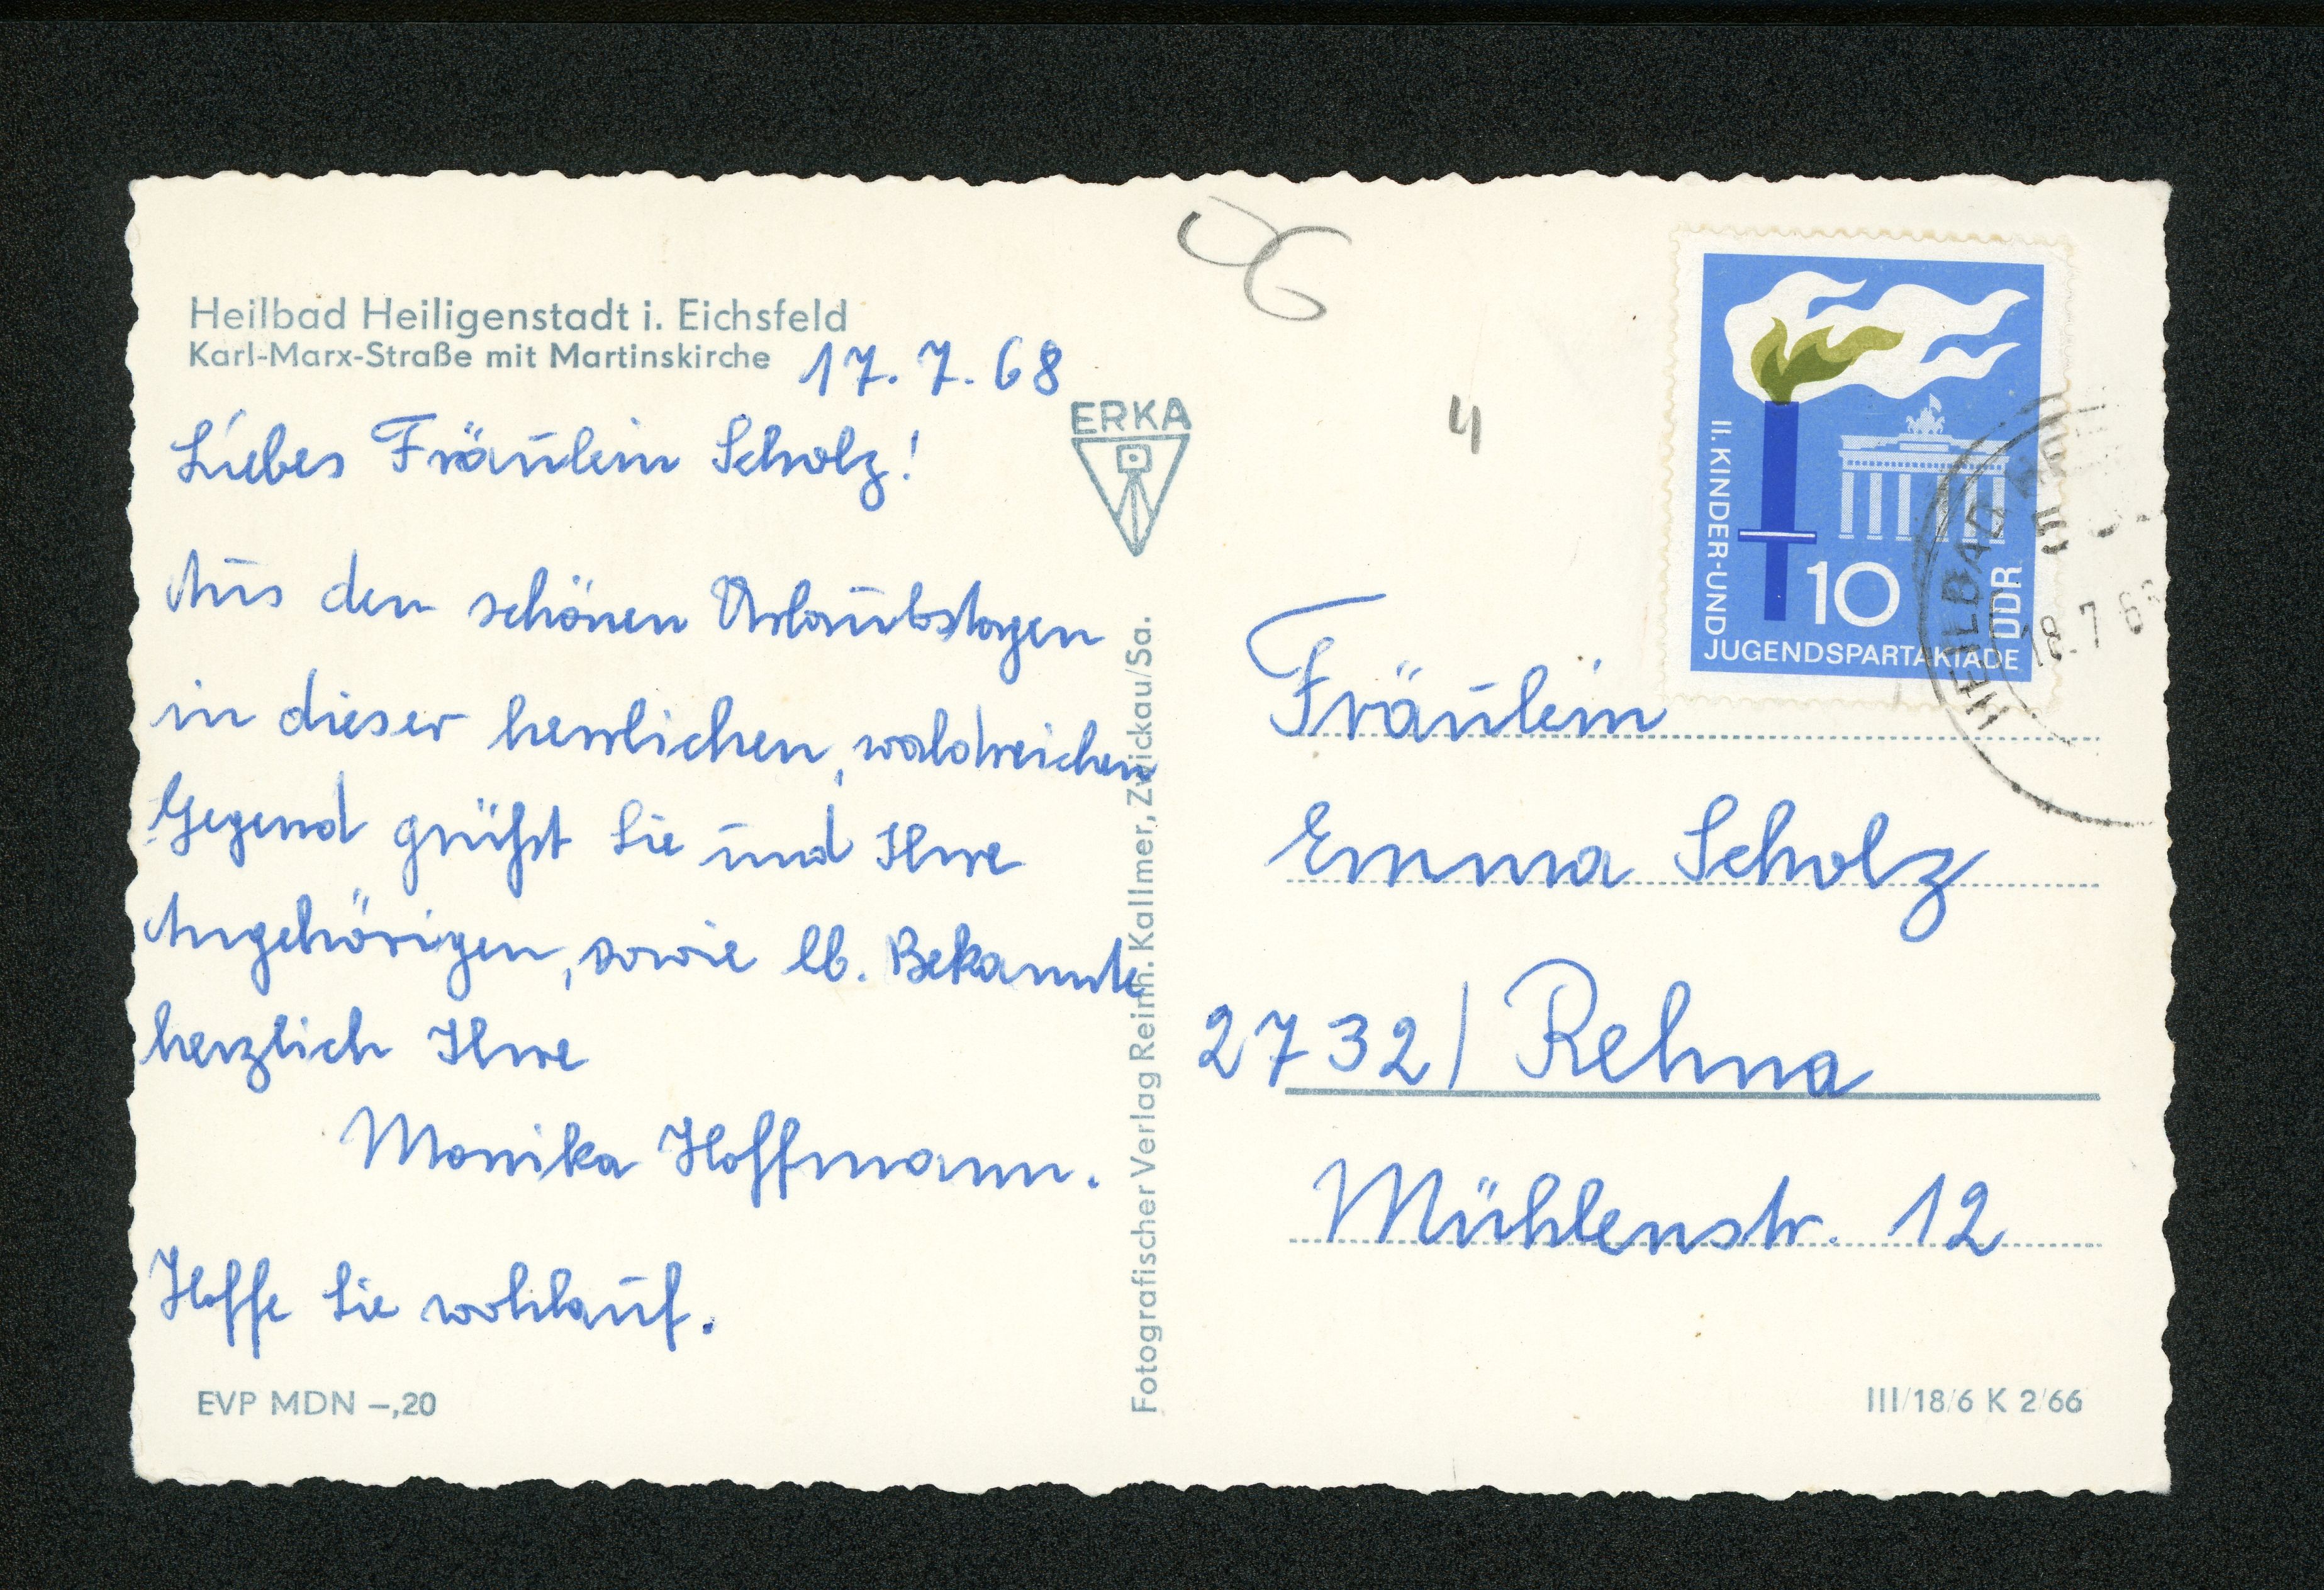 Heilbad Heiligenstadt i. Eichsfeld
Karl-Marx-Straße mit Martinskirche
17.7.68
Liebes Fräulein Scholz!
Aus den schönen Urlaubstagen
in dieser herrlichen, waldreichen
Gegend grüßt Sie und Ihre
Angehörigen, sowie lb. Bekannte
herzlich Ihre
Monika Hoffmann.
Hoffe Sie wohlauf.
EVP MDN –,20
ERKA
Fotografischer Verlag Reinh. Kallmer, Zwickau/Sa.
4
II. KINDER-UND
JUGENDSPARTAKIADE
10
DDR
HEILBAD
18.7.6
Fräulein
Emma Scholz
2732/ Rehna
Mühlenstr. 12
III/18/6 K 2/66